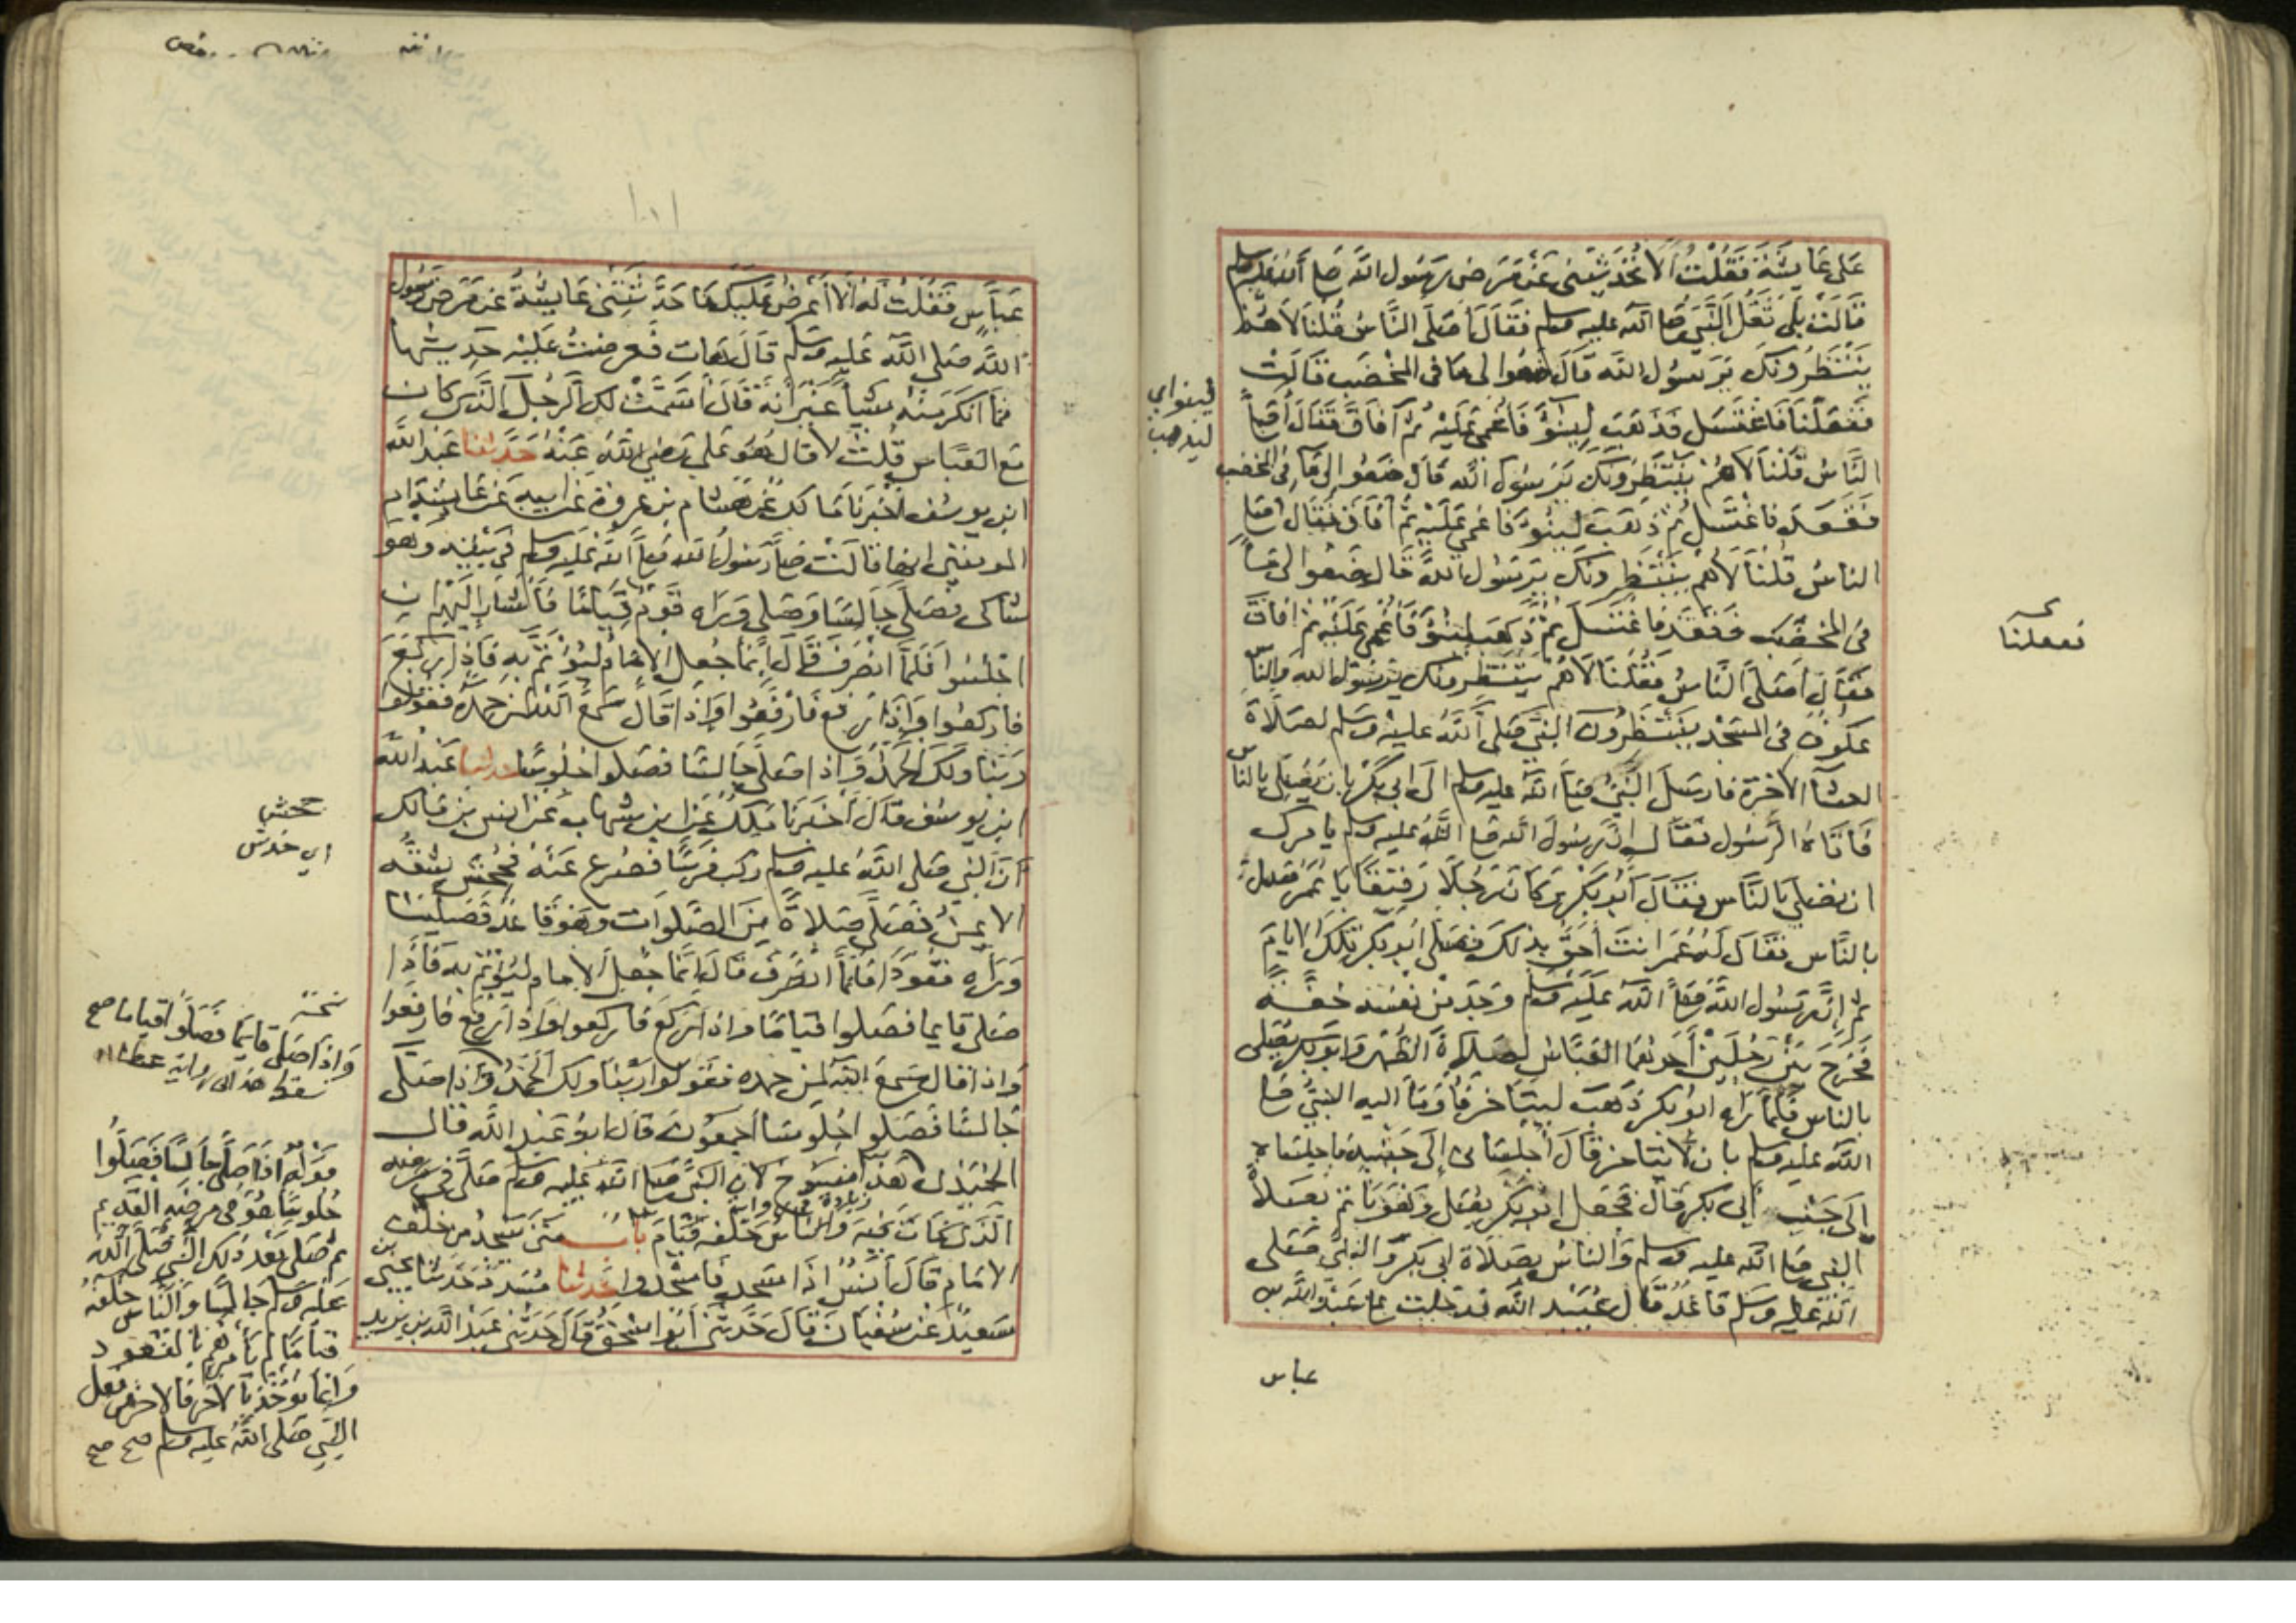 على عايشة فقلت الا تحدثيني عن مرض رسول الله صلى الله عليه وسلم
قالت بلى ثقل النبي صلى الله عليه وسلم فقال اصلى الناس قلنا لا هم
ينتظرونك يرسول الله قال ضعوا لى ما فى المخضب قالت
ففعلنا فاغتسل فذهب لينوء فاغمي عليه ثم افاق فقال اصلى
الناس قلنا لا هم ينتظرونك يرسول الله قال ضعوا لى ما فى المخضب
فقعد فاغتسل ثم ذهب لينوء فاغمي عليه ثم افاق فقال اصلى
الناس قلنا لا هم ينتظرونك يرسول الله قال ضعوا لى ما
فى المخضب فقعد فاغتسل ثم ذهب لينوء فاغمي عليه ثم افاق
فقال اصلى الناس فقلنا لا هم ينتظرونك يرسول الله والناس
عكوف فى المسجد ينتظرون النبي صلى الله عليه وسلم لصلاة
العشآ الاخرة فارسل النبي صلى الله عليه وسلم الى ابى بكر بان يصلى بالناس
فاتاه الرسول فقال ان رسول الله صلى الله عليه وسلم يامرك
ان تصلي بالناس فقال ابو بكر وكان رجلا رقيقا يا عمر صل
بالناس فقال له عمر انت احق بذلك فصلى ابو بكر تلك الايام
ثم ان رسول الله صلى الله عليه وسلم وجد من نفسه خفة
فخرج بين رجلين احدهما العباس لصلاة الظهر وابو بكر يصلى
بالناس فلما راه ابو بكر ذهب ليتاخر فاومآ اليه النبي صلى
الله عليه وسلم بان لا يتاخر قال اجلسانى الى جنبه فاجلساه
الى جنب ابى بكر قال فجعل ابو بكر يصلى وهو ياتم بصلاة
النبى صلى الله عليه وسلم والناس بصلاة ابى بكر والنبي صلى
الله عليه وسلم قاعد قال عبيد الله فدخلت على عبد الله بن
عباس
لينواي
ليذهب
ففعلنا
عباس فقلت له الا اعرض عليك ما حدثتني عايشة عن مرض رسول
الله صلى الله عليه وسلم قال هات فعرضت عليه حديثها
فما انكر منه شيا غير انه قال اسمت لك الرجل الذى كان
مع العباس قلت لا قال هو على رضي الله عنه حدثنا عبد الله
ابن يوسف اخبرنا مالك عن هشام بن عروة عن ابيه عن عايشة ام
المومنين انها قالت صلى رسول الله صلى الله عليه وسلم فى بيته وهو
شاكى فصلى جالسا وصلى وراه قوم قياما فاشار اليهم ان
اجلسوا فلما انصرف قال انما جعل الامام ليؤتم به فاذا ركع
فاركعوا واذا رفع فارفعوا واذا قال سمع الله لمن حمده فقولوا
ربنا ولك الحمد واذا صلى جالسا فصلوا جلوسا حدثنا عبد الله
ابن يوسف قال اخبرنا ملك عن ابن شهاب عن انس بن مالك
ان النبي صلى الله عليه وسلم ركب فرسا فصرع عنه فجحش شقه
الايمن فصلى صلاة من الصلوات وهو قاعد فصلينا
وراه قعودا فلما انصرف قال انما جعل الامام ليؤتم به فاذا
صلى قايما فصلوا قياما واذا ركع فاركعوا واذا رفع فارفعوا
واذا قال سمع الله لمن حمده فقولوا ربنا ولك الحمد واذا صلى
جالسا فصلوا جلوسا اجمعون قال ابو عبد الله قال
الحميدى هذا منسوخ لان النبي صلى الله عليه وسلم صلى في مرضه
الذى مات فيه والناس خلفه قيام باب متى يسجد من خلف
الامام قال انس اذا سجد فاسجدوا حدثنا مسدد حدثنا يحيى بن
سعيد عن سفيان قال حدثنى ابو اسحق قال حدثنى عبد الله بن يزيد
جحش
اى خدش
نسخة
واذا صلى قايما فصلوا قياما صح
سقط هذا فى رواية عطا
قوله اذا صلى جالسا فصلوا
جلوسا هو فى مرضه القديم
ثم صلى بعد ذلك النبي صلى الله
عليه وسلم جالسا والناس خلفه
قياما لم يامرهم بالقعود
وانما يؤخذ بالاخر فالاخر من فعل
النبي صلى الله عليه وسلم صح صح